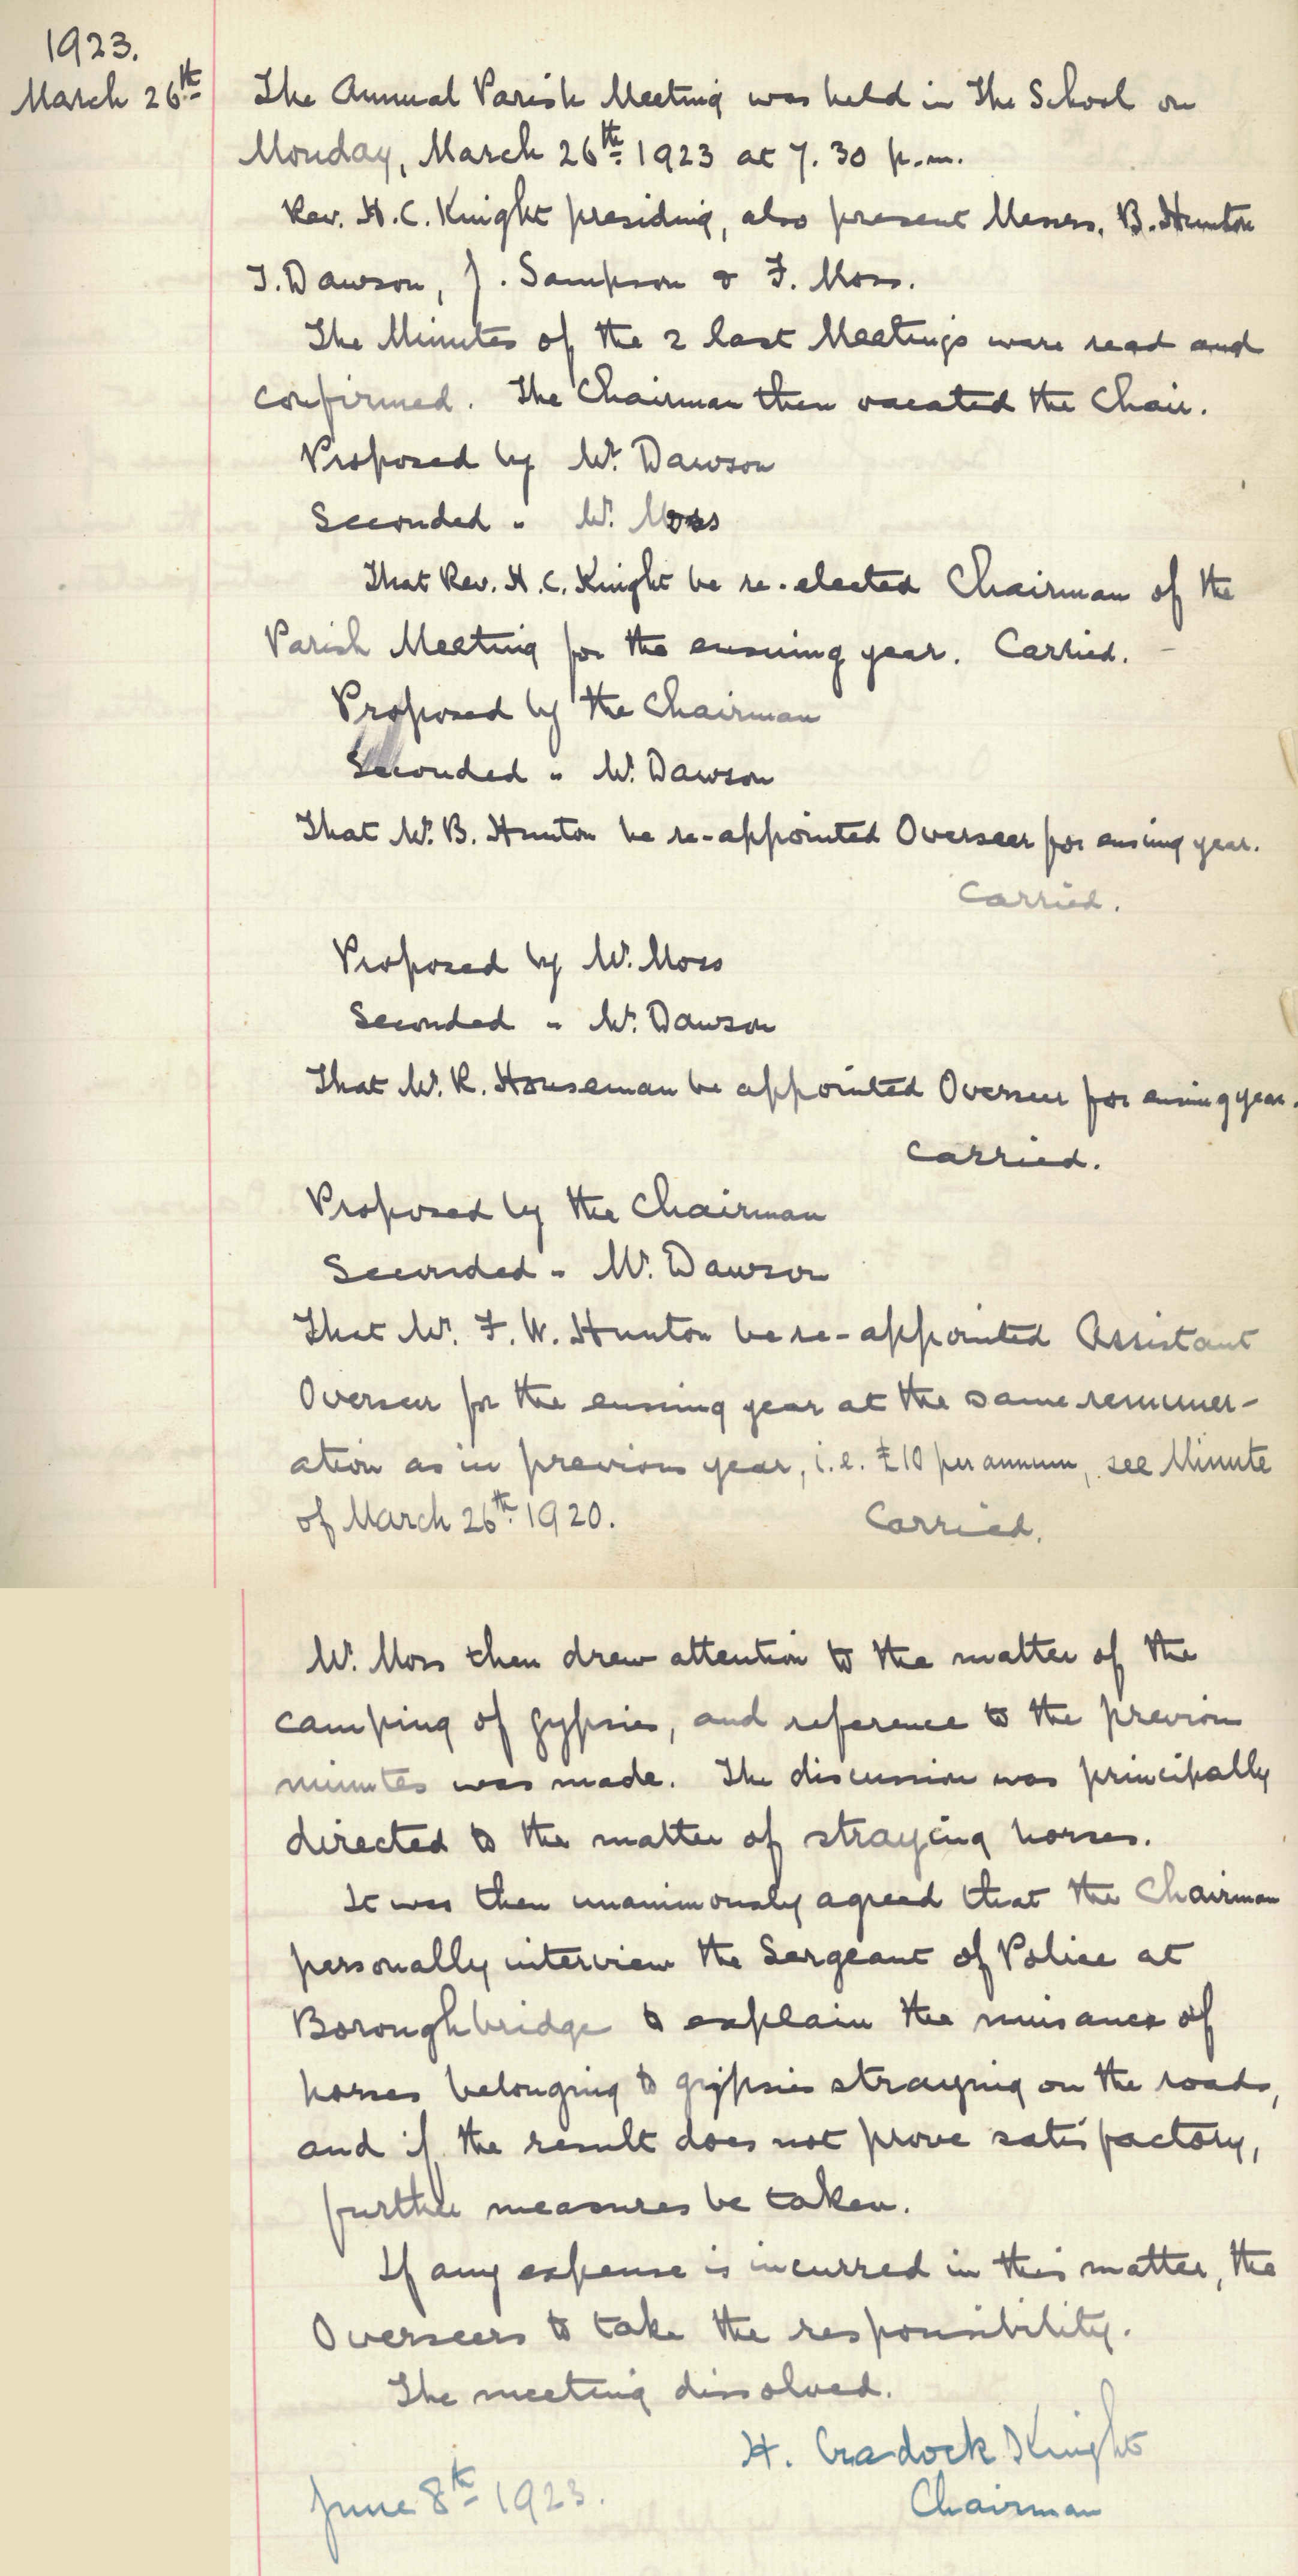 1923.
March 26th
The Annual Parish Meeting was held in The School on
Monday, March 26th 1923 at 7.30 p.m.
Rev. H.C. Knight presiding, also present Messrs. B. Hunton
T. Dawson, J. Sampson & F. Moss.
The Minutes of the 2 last Meetings were read and
confirmed. The Chairman then vacated the Chair.
Proposed by Mr. Dawson
Seconded " Mr. Moss
That Rev. H.C. Knight be re-elected Chairman of the
Parish Meeting for the ensuing year. Carried.
Proposed by the Chairman
Seconded " Mr. Dawson
That Mr. B. Hunton be re-appointed Overseer for ensuing year.
Carried.
Proposed by Mr. Moss
Seconded " Mr. Dawson
That Mr. R. Houseman be appointed Overseer for ensuing year.
Carried.
Proposed by the Chairman
Seconded " Mr. Dawson
That Mr. F. W. Hunton be re-appointed Assistant
Overseer for the ensuing year at the same remuner-
ation as in previous year, i.e. £10 per annum, see Minute
of March 26th 1920. Carried.
Mr. Moss then drew attention to the matter of the
camping of gypsies, and reference to the previous
minutes was made. The discussion was principally
directed to the matter of straying horses.
It was then unanimously agreed that the Chairman
personally interview the Sergeant of Police at
Boroughbridge to explain the nuisance of
horses belonging to gypsies straying on the roads,
and if the result does not prove satisfactory,
further measures be taken.
If any expense is incurred in this matter, the
Overseers to take the responsibility.
The meeting dissolved.
H. Cradock Knight
June 8th 1923. Chairman